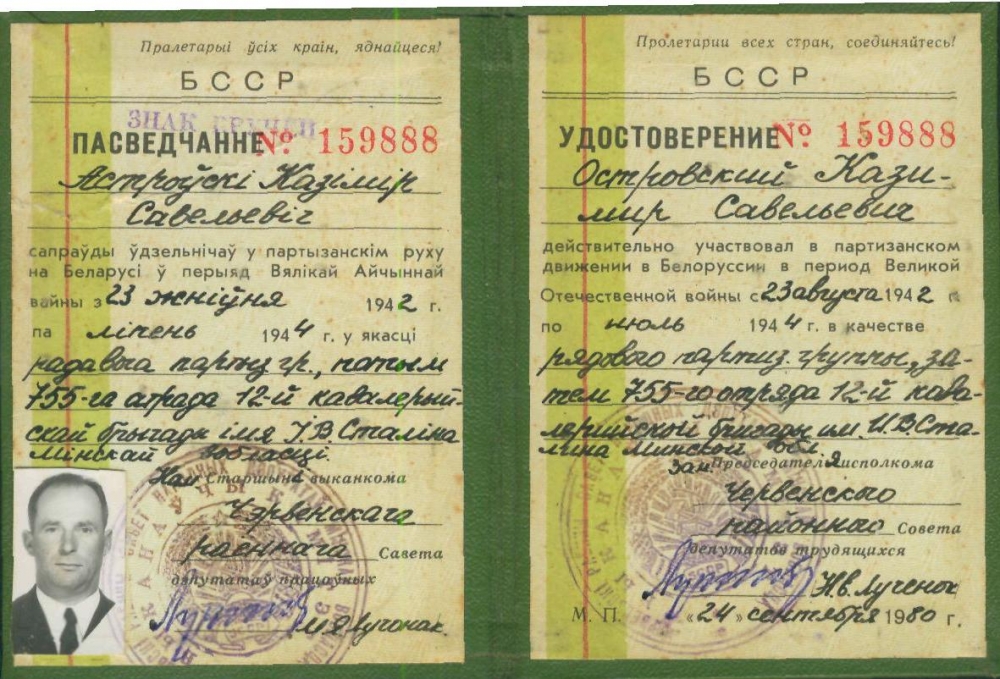 Пралетарыі ўсіх краін, яднайцеся!
БССР
ЗНАК ВРУЧЕН
ПАСВЕДЧАННЕ № 159888
Астроўскі Казімір
Савельевіч
сапраўды ўдзельнічаў у партызанскім руху
на Беларусі ў перыяд Вялікай Айчыннай
вайны з 23 жніўня 1942 г.
па ліпень 1944 г. у якасці
радавога партыз. гр., потым
755-га атрада 12-й кавалерый-
скай брыгады імя І.В. Сталіна
Мінскай вобласці.
Нам. Старшыні выканкома
Чэрвенскага
раённага Савета
дэпутатаў працоўных
Лучанок.
Пролетарии всех стран, соединяйтесь!
БССР
УДОСТОВЕРЕНИЕ № 159888
Островский Кази-
мир Савельевич
действительно участвовал в партизанском
движении в Белоруссии в период Великой
Отечественной войны с 23 августа 1942 г.
по июль 1944 г. в качестве
рядового партиз. группы, за-
тем 755-го отряда 12-й кава-
лерийской бригады им. И.В. Ста-
лина Минской обл.
Зам. Председателя исполкома
Червенского
районного Совета
депутатов трудящихся
Н.В. Лученок
М. П. «24» сентября 1980 г.